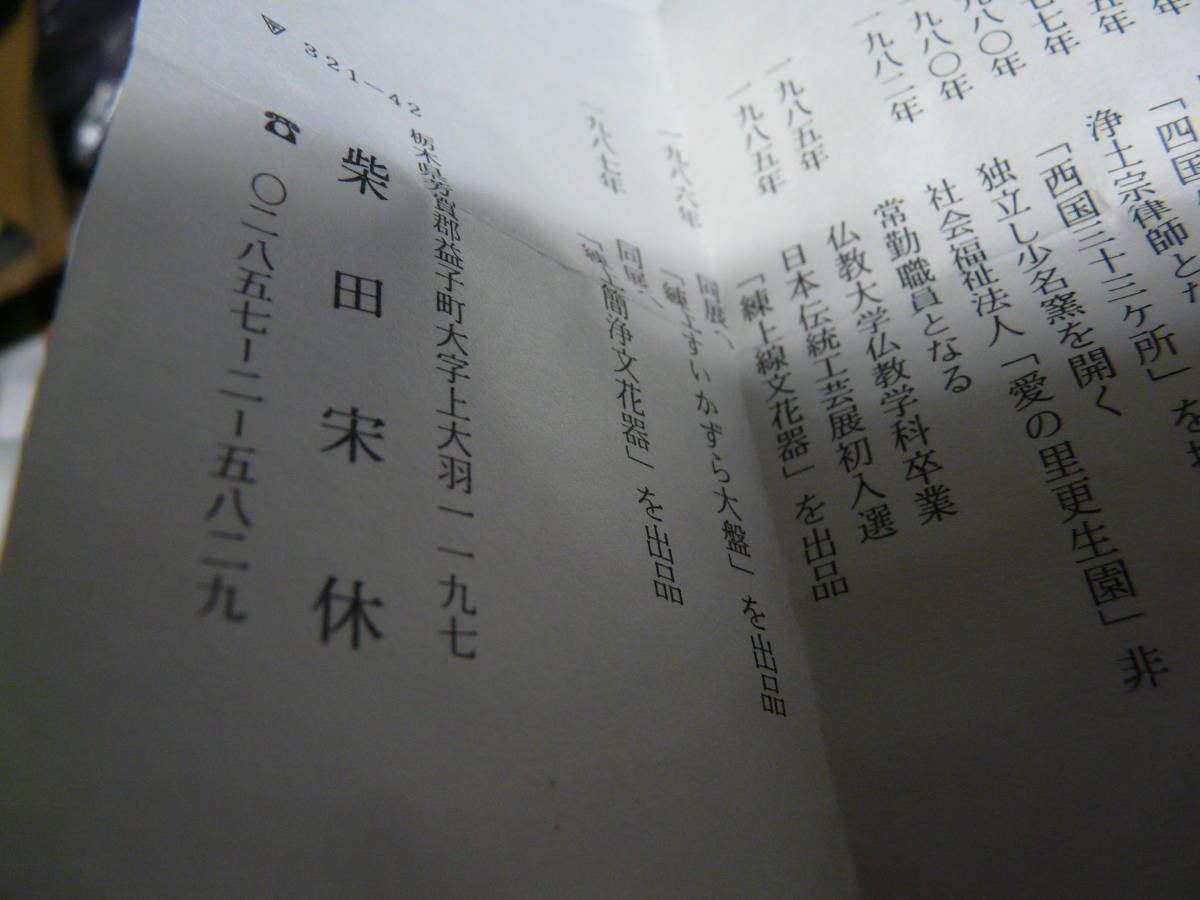 年
五年 「四国
七七年 浄土宗律師とな
九八〇年 「西国三十三ヶ所」を
九八〇年 独立し少名窯を開く
一九八二年 社会福祉法人「愛の里更生園」非
常勤職員となる
一九八五年 仏教大学仏教学科卒業
一九八五年 日本伝統工芸展初入選
「練上線文花器」を出品
一九八六年 同展、
「練上すいかずら大盤」を出品
一九八七年 同展、
「練上簡浄文花器」を出品
321-42 栃木県芳賀郡益子町大字上大羽一一九七
柴田宋休
☎ 〇二八五七ー二ー五八二九